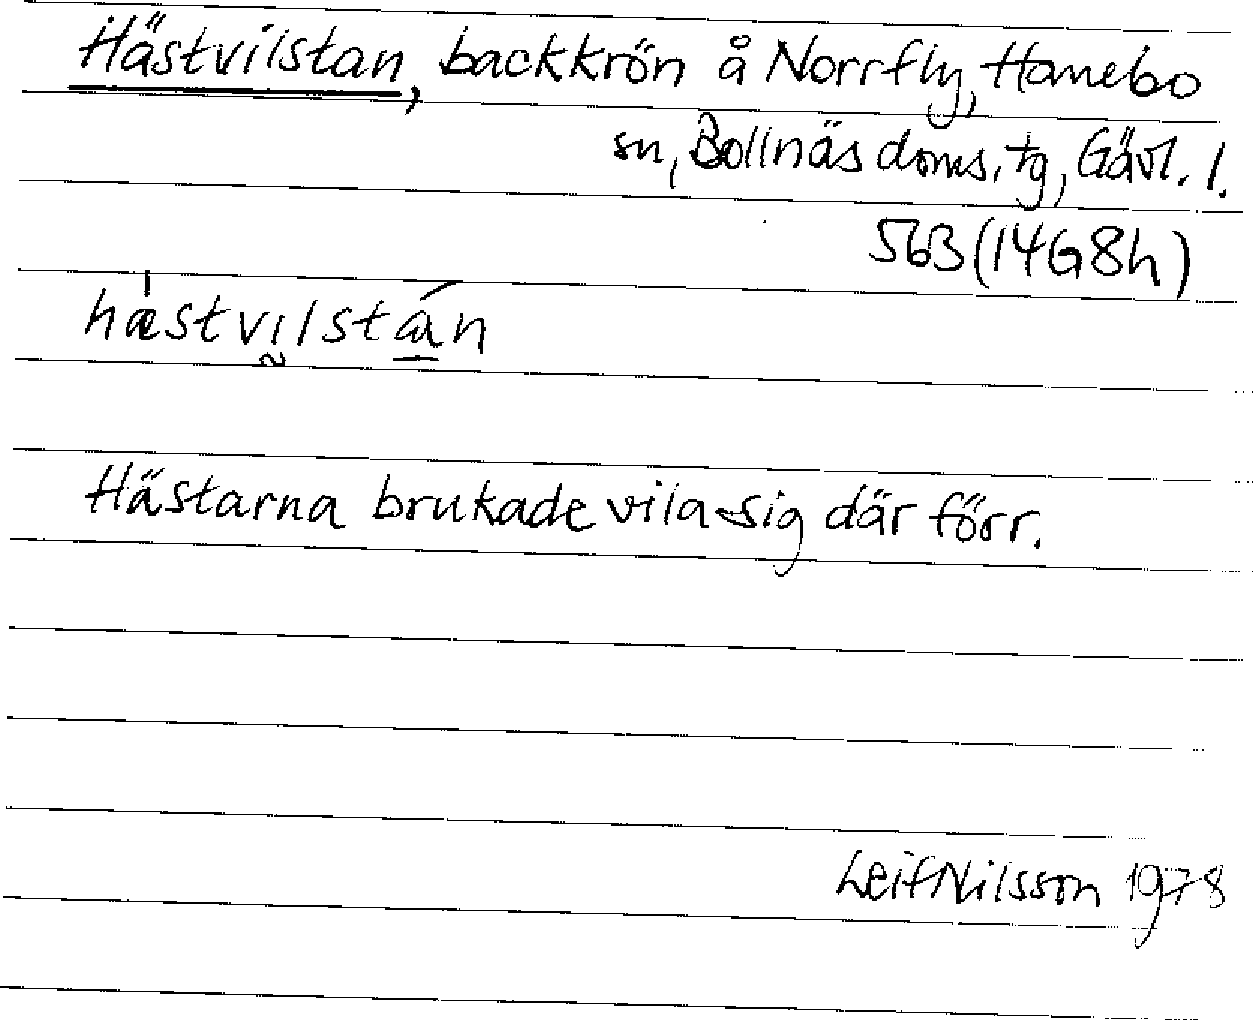 Hästvilstan, backkrön å Norrfly, Hanebo
sn, Bollnäs doms. tg, Gävl. l.
563 (14G8h)
hæ̍stvḭlstán
Hästarna brukade vila sig där förr.
Leif Nilsson 1978